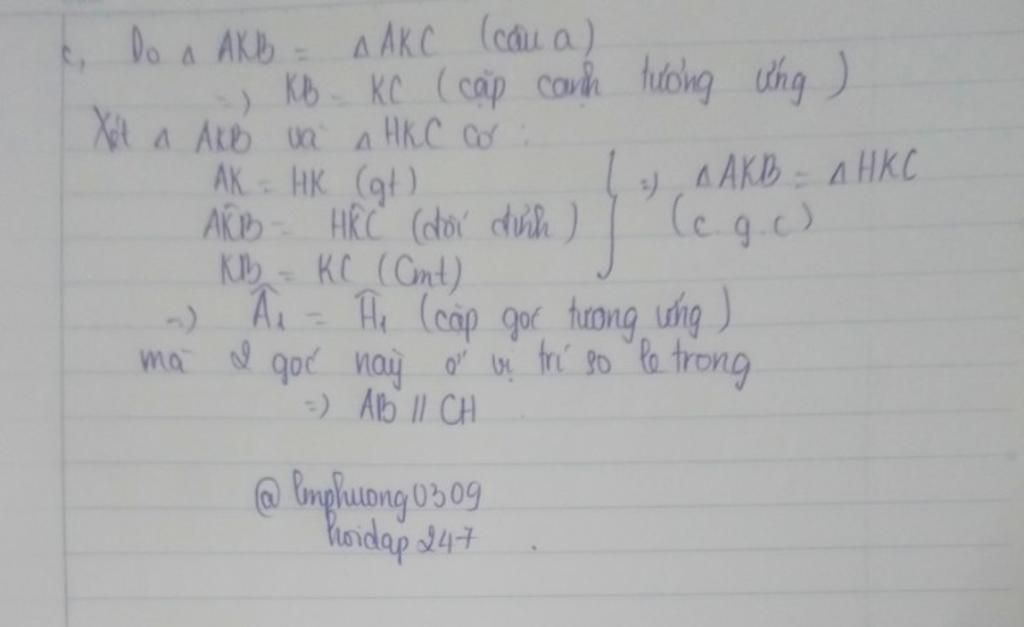 c, Do △ AKB = △ AKC (câu a)
=) KB = KC (cặp cạnh tương ứng)
Xét △ AKB và △ HKC có :
AK = HK (gt)
AK̂B = HK̂C (đối đỉnh) } =) △AKB = △HKC
KB = KC (Cmt) (c.g.c)
=) Â₁ = Ĥ₁ (cặp góc tương ứng)
mà 2 góc này ở vị trí so le trong
=) AB // CH
@lmphuong0309
hoidap247